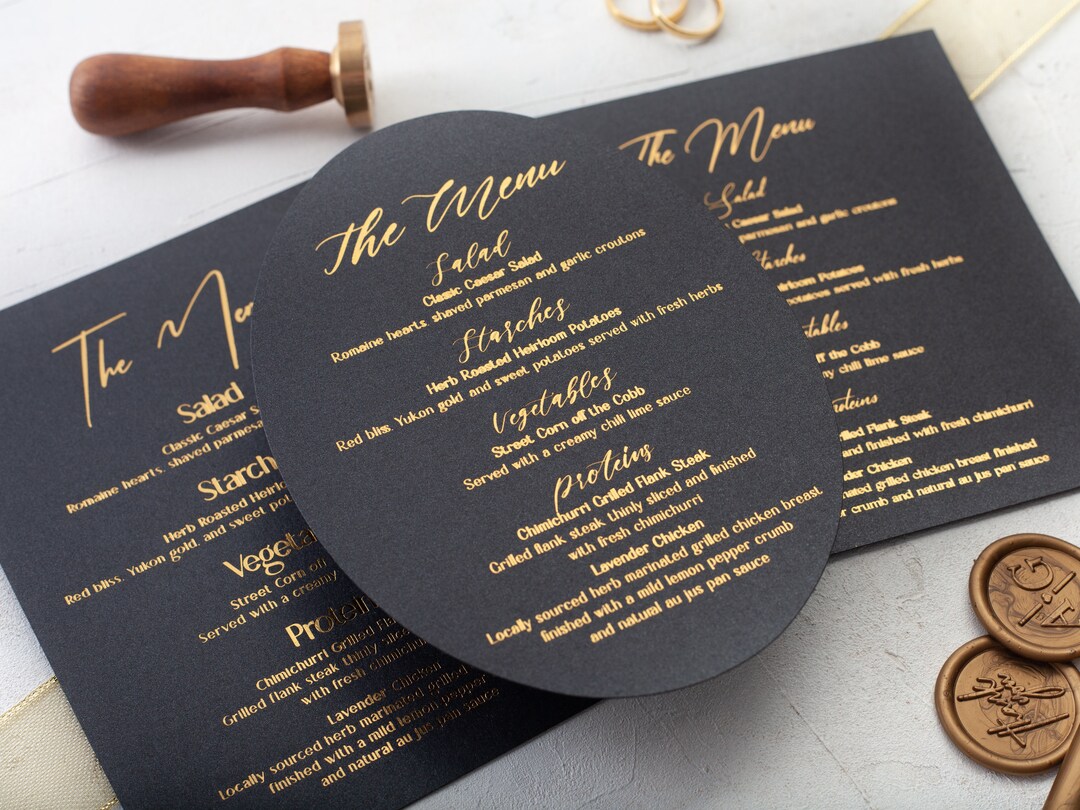 The Menu
Salad
Classic Caesar Salad
Romaine hearts, shaved parmesan and garlic croutons
Starches
Herb Roasted Heirloom Potatoes
Red bliss, Yukon gold, and sweet potatoes served with fresh herbs
Vegetables
Street Corn off the Cobb
Served with a creamy chili lime sauce
Proteins
Chimichurri Grilled Flank Steak
Grilled flank steak thinly sliced and finished
with fresh chimichurri
Lavender Chicken
Locally sourced herb marinated grilled chicken breast
finished with a mild lemon pepper crumb
and natural au jus pan sauce
The Men
Salad
Classic Caesar S
Romaine hearts, shaved parmesa
Starch
Herb Roasted Heirlo
Red bliss, Yukon gold, and sweet pot
Vegeta
Street Corn off
Served with a creamy
Protein
Chimichurri Grilled Fla
Grilled flank steak thinly slic
with fresh chimichurri
Lavender Chicken
Locally sourced herb marinated grilled
finished with a mild lemon pepper
and natural au jus pan sauce
The Menu
Salad
Caesar Salad
parmesan and garlic croutons
tarches
irloom Potatoes
potatoes served with fresh herbs
tables
off the Cobb
y chili lime sauce
roteins
rilled Flank Steak
and finished with fresh chimichurri
nder Chicken
nated grilled chicken breast finished
r crumb and natural au jus pan sauce